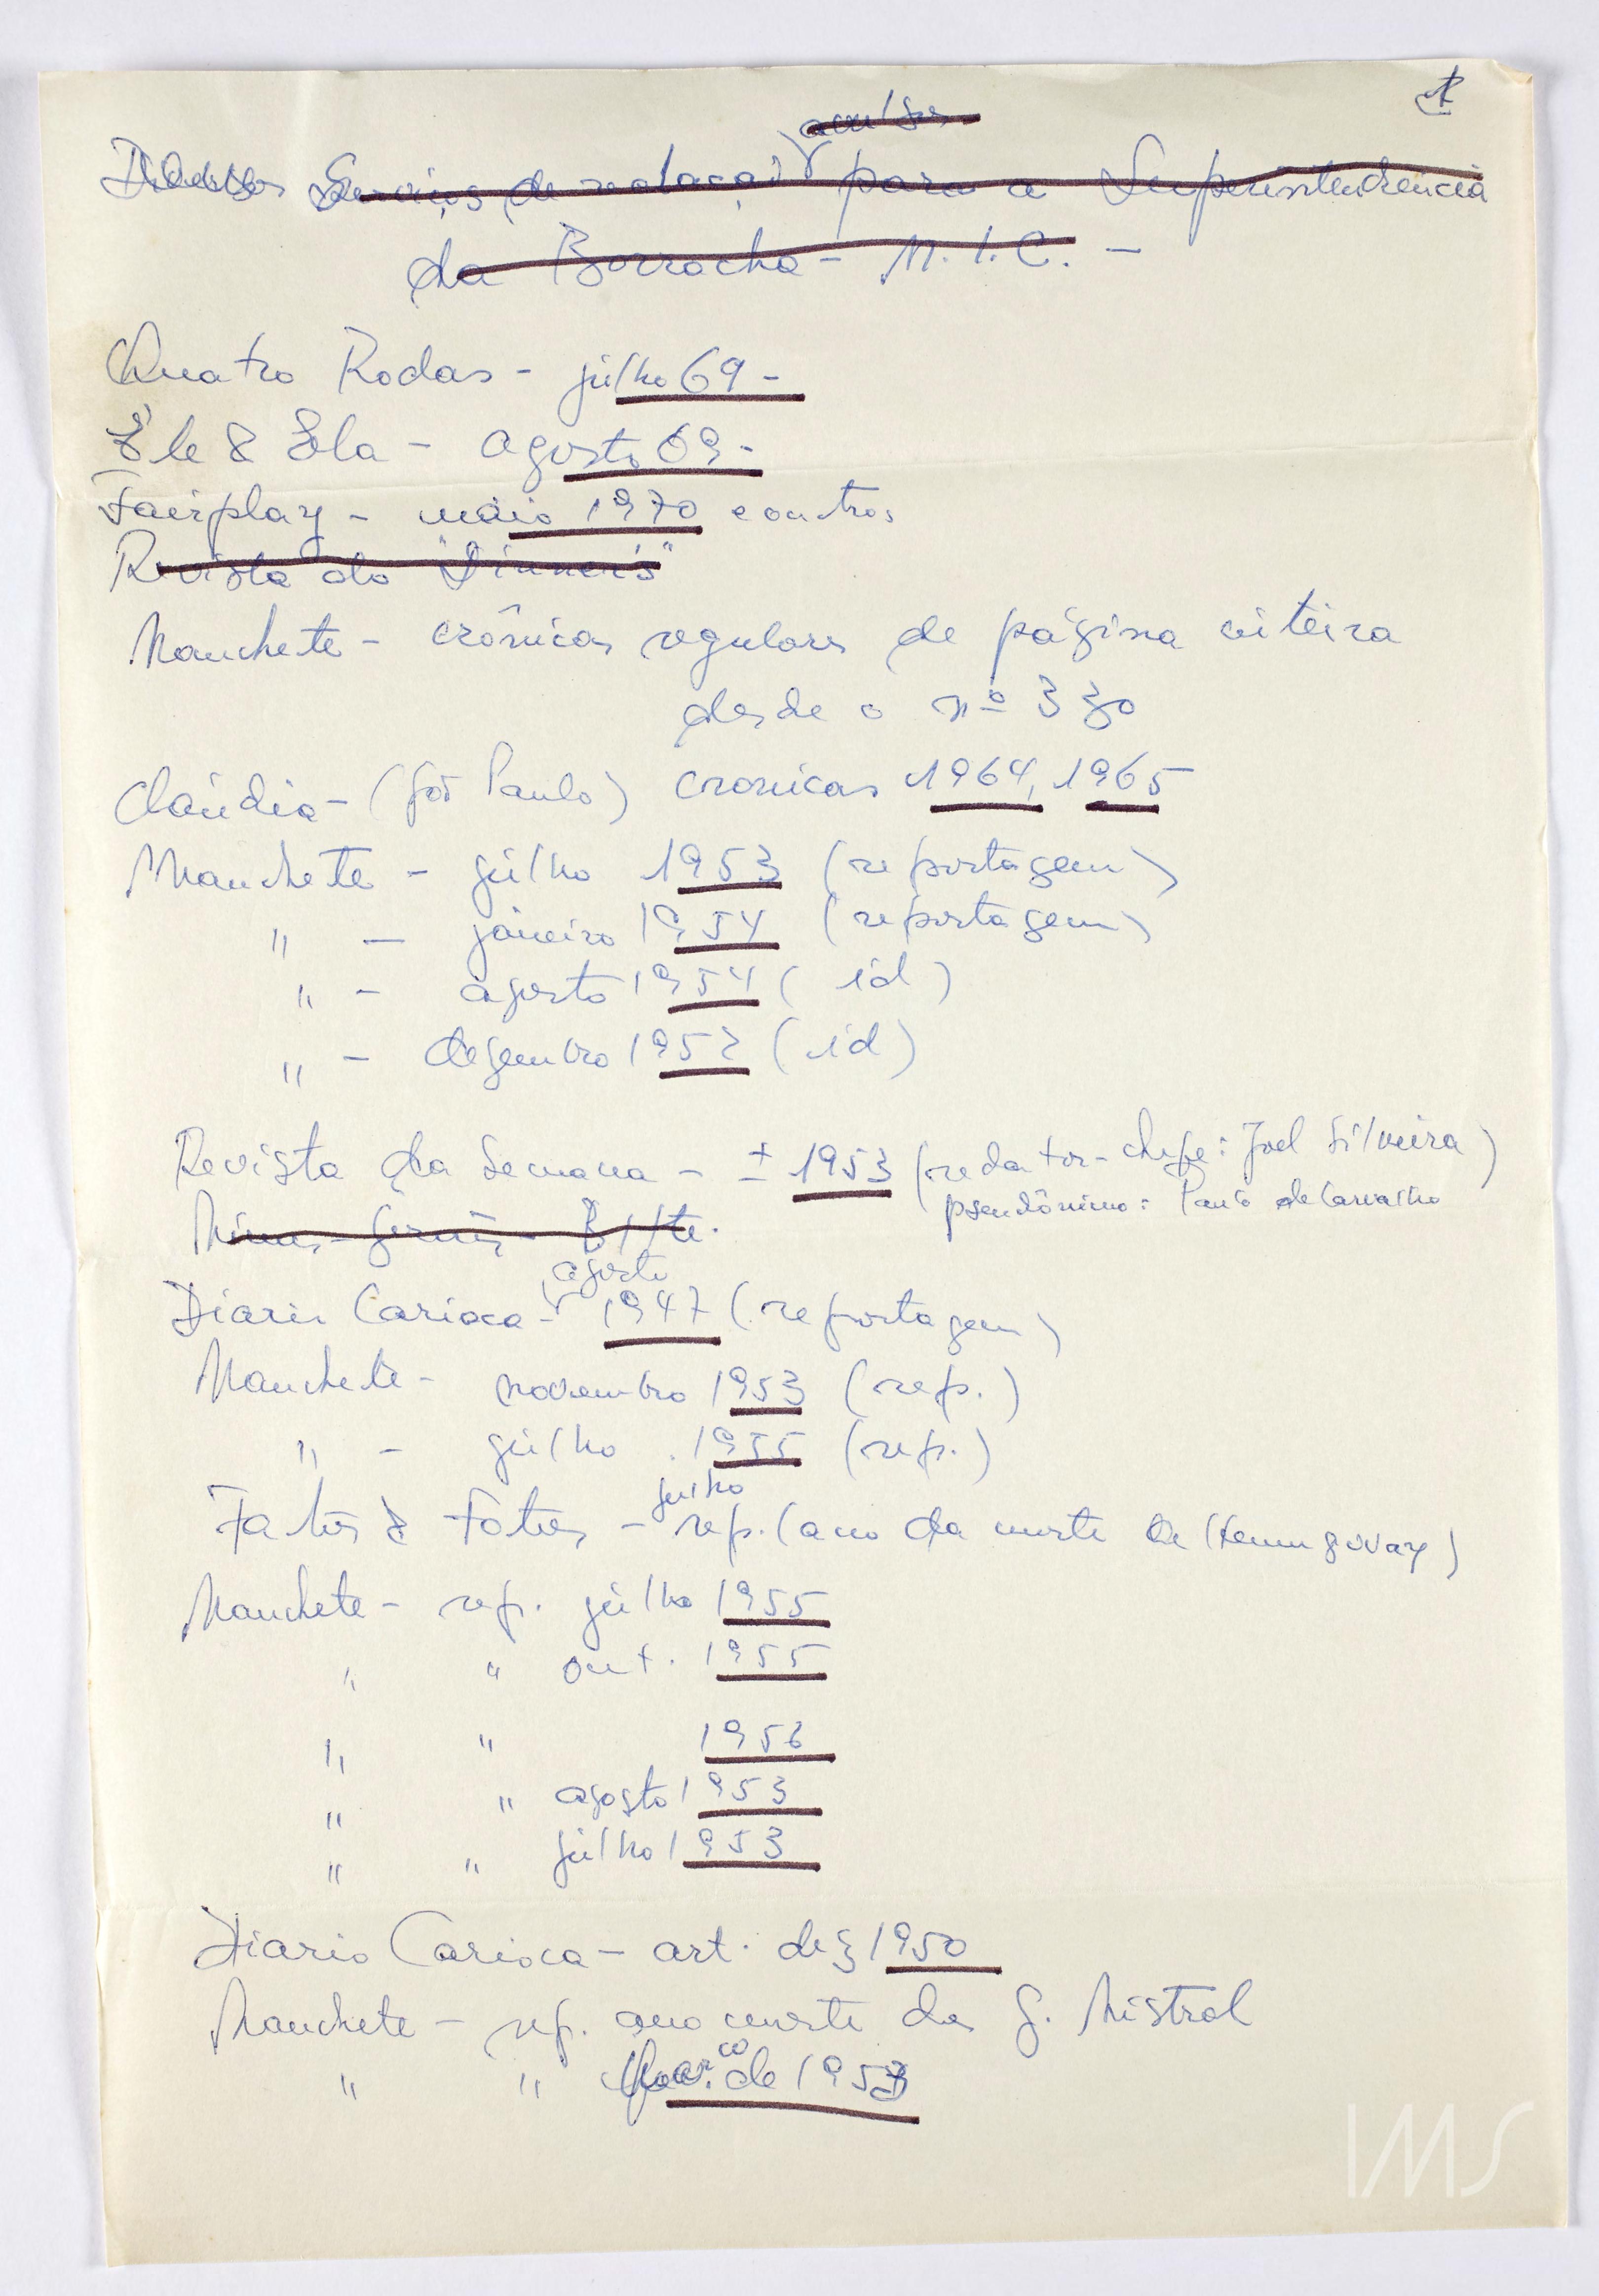 1
avulsos
Diversos Serviços de redação para a Superintendência
da Borracha - M.I.C. -
Quatro Rodas - julho 69 -
Êle & Ela - agosto 69 -
Fairplay - maio 1970 e outros
Revista do "Dinner's"
Manchete - crônicas regulares de página inteira
desde o nº 330
Claúdia - (São Paulo) cronicas 1964, 1965
Manchete - julho 1953 (reportagem)
" - janeiro 1954 (reportagem)
" - agosto 1954 ( id )
" - dezembro 1952 ( id )
Revista da Semana - ± 1953 (redator-chefe: Joel Silveira)
pseudônimo: Paulo de Carvalho
Minas Gerais - B. Hte.
agosto
Diario Carioca - 1947 (reportagem)
Manchete - novembro 1953 (rep.)
" - julho 1955 (rep.)
julho
Fatos & Fotos - rep. (ano da morte de Hemingway)
Manchete - rep. julho 1955
" " out. 1955
" " 1956
" " agosto 1953
" " julho 1953
Diario Carioca - art. dez 1950
Manchete - rep. ano morte da G. Mistral
" " de 195
IMS